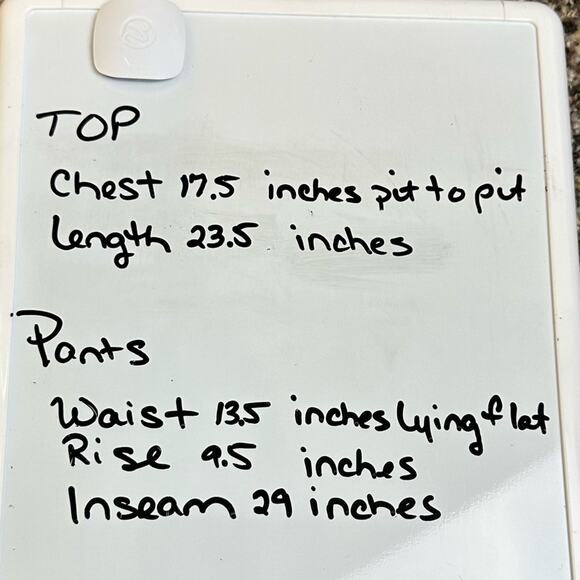 TOP
Chest 17.5 inches pit to pit
Length 23.5 inches
Pants
Waist 13.5 inches lying flat
Rise 9.5 inches
Inseam 29 inches